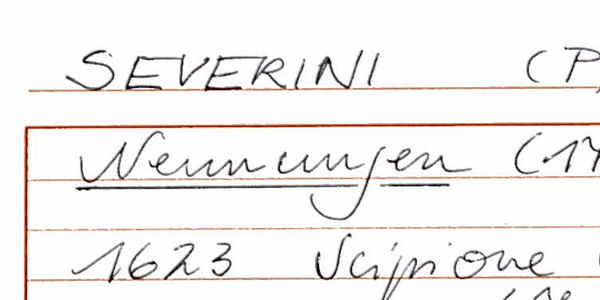 SEVERINI (P
Nennungen (17
1623 Scipione